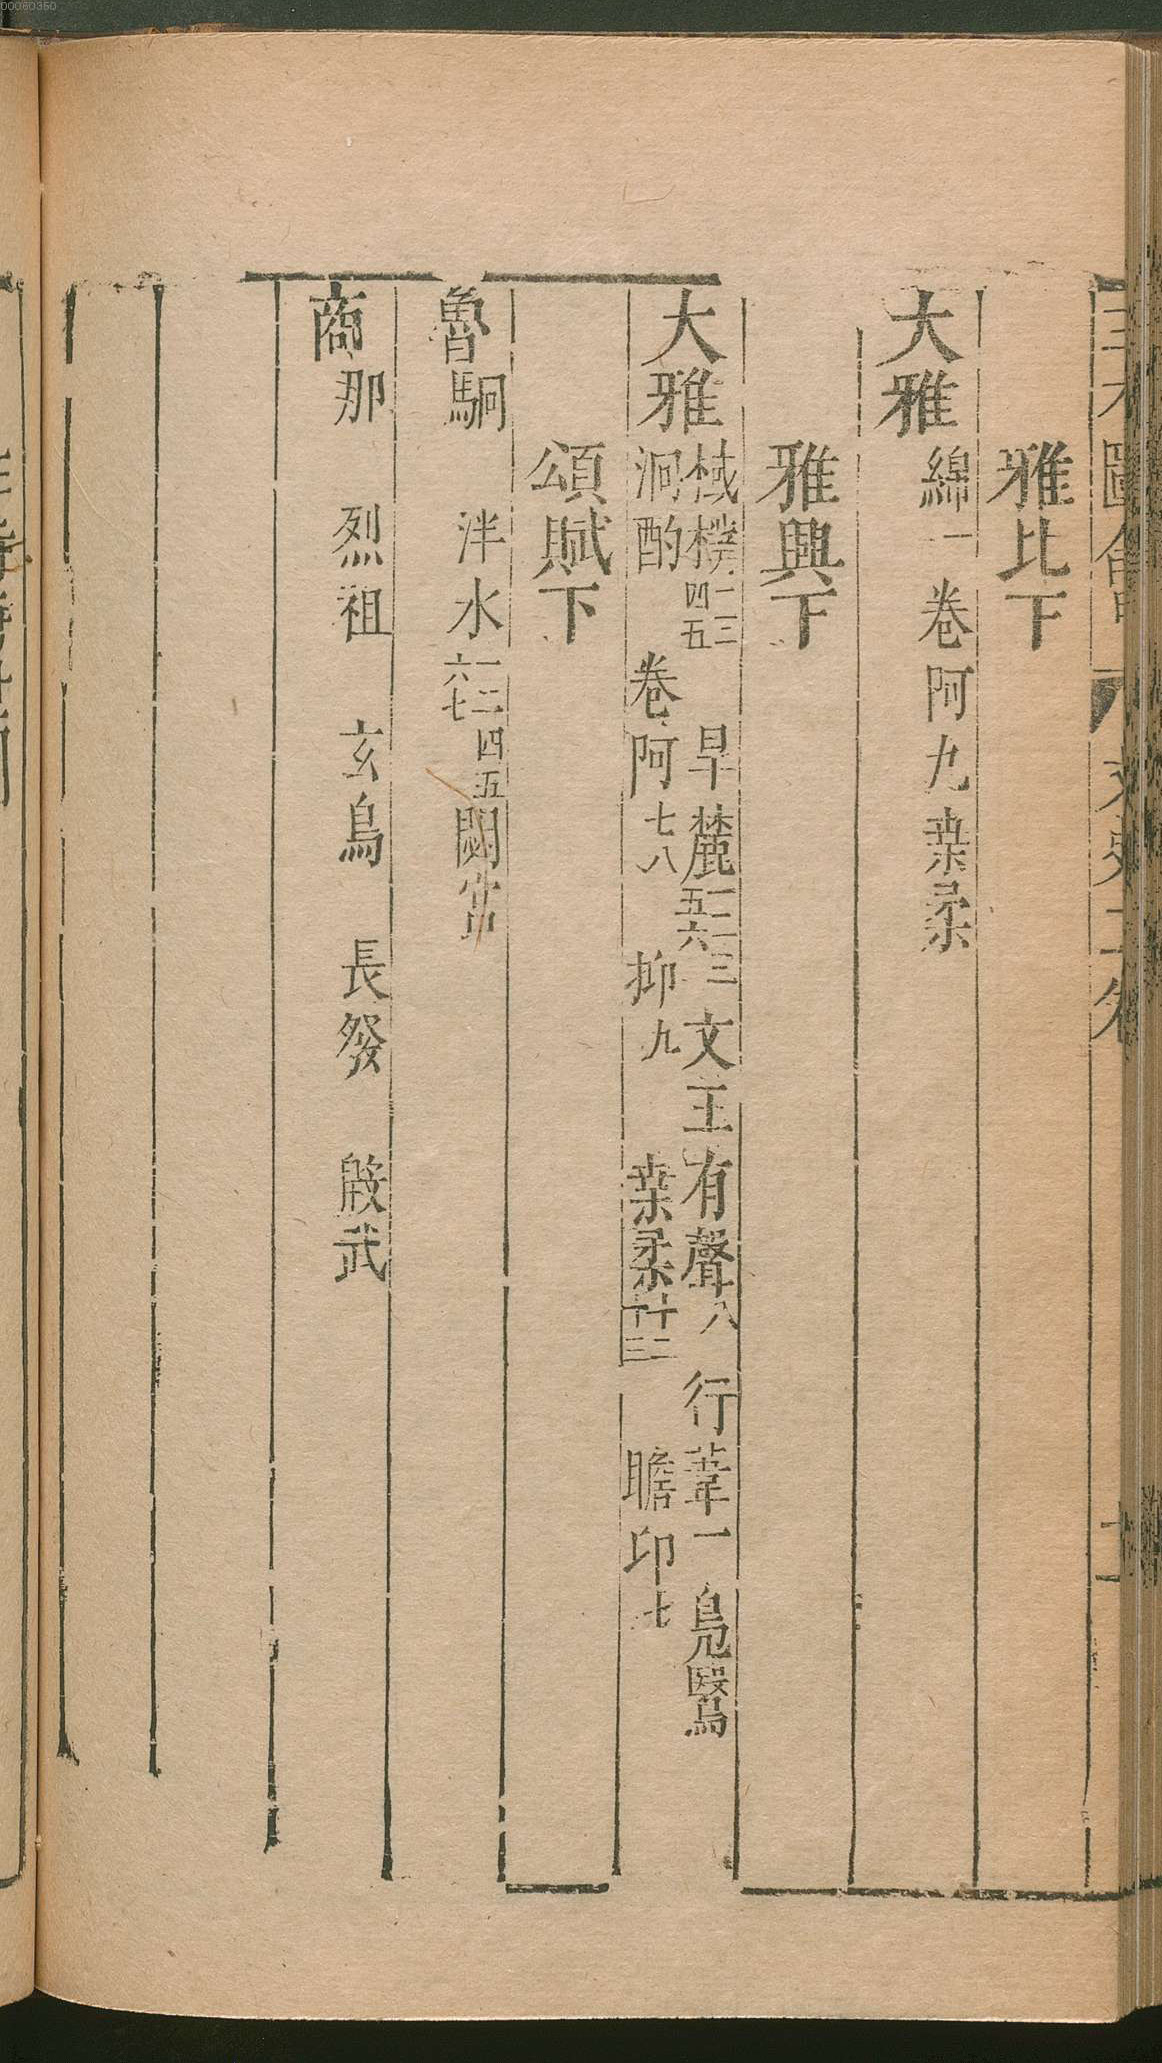 00060350
雅比下
大雅 綿一 卷阿九 桑柔
雅興下
大雅 棫樸一三四五 旱麓一二三五六 文王有聲八 行葦一 鳧鷖
泂酌 卷阿七八 抑九 桑柔十二十三 瞻卬七
頌賦下
魯 駉 泮水一二四五六七 閟宮
商 那 烈祖 玄鳥 長發 殷武